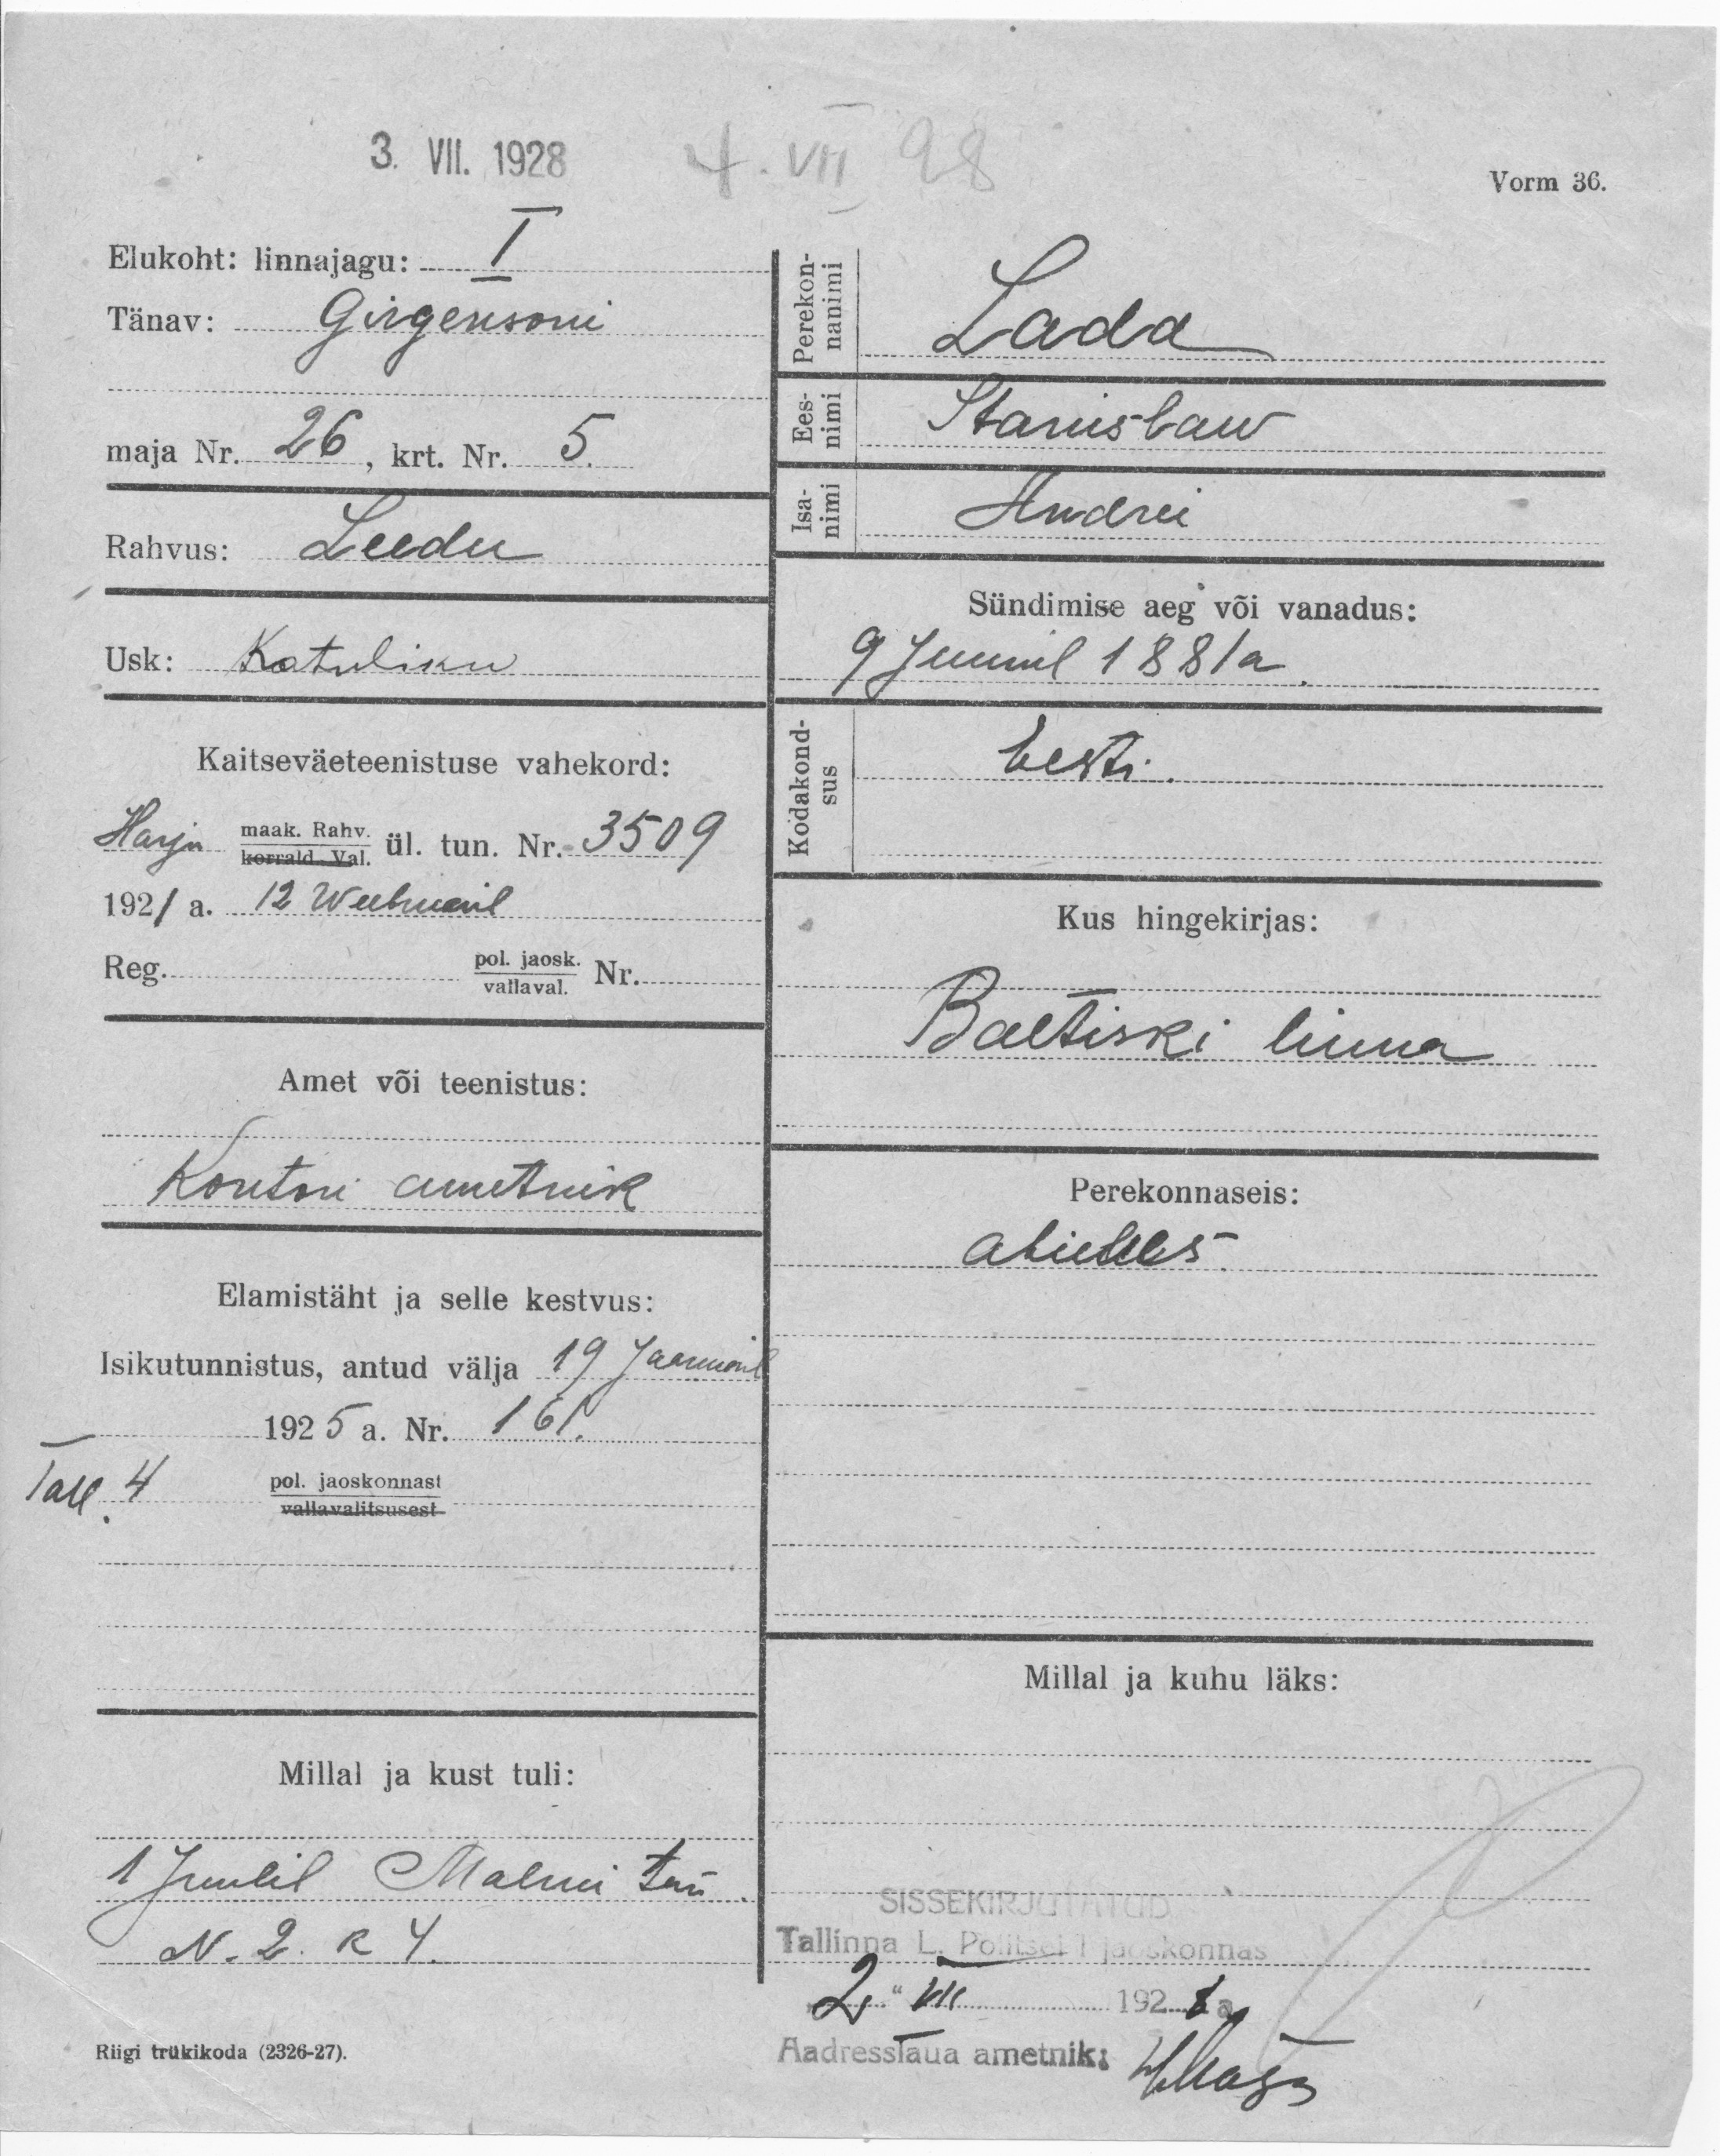 3. VII. 1928
4. VII 28
Vorm 36.
Elukoht: linnajagu: I
Tänav: Girgensoni
maja Nr. 26, krt. Nr. 5.
Rahvus: Leedu
Usk: Katuliku
Kaitseväeteenistuse vahekord:
Harju maak. Rahv. korrald. Val. ül. tun. Nr. 3509
1921 a. 12 Weebruaril
Reg. pol. jaosk. vallaval. Nr.
Amet või teenistus:
Kontori ametnik
Elamistäht ja selle kestvus:
Isikutunnistus, antud välja 19 Jaanuaril
1925 a. Nr. 161.
Tall. 4 pol. jaoskonnast
vallavalitsusest
Millal ja kust tuli:
1 Juulil Malmi tän.
N. 2. k 4.
Riigi trükikoda (2326-27).
Perekonnanimi
Lada
Eesnimi
Stanislaw
Isanimi
Andrei
Sündimise aeg või vanadus:
9 Juunil 1881 a.
Kodakondsus
Eesti.
Kus hingekirjas:
Baltiski linna
Perekonnaseis:
abielus
Millal ja kuhu läks:
SISSEKIRJUTATUD
Tallinna L. Politsei I jaoskonnas
2 " VII 1928 a
Aadresslaua ametnik: